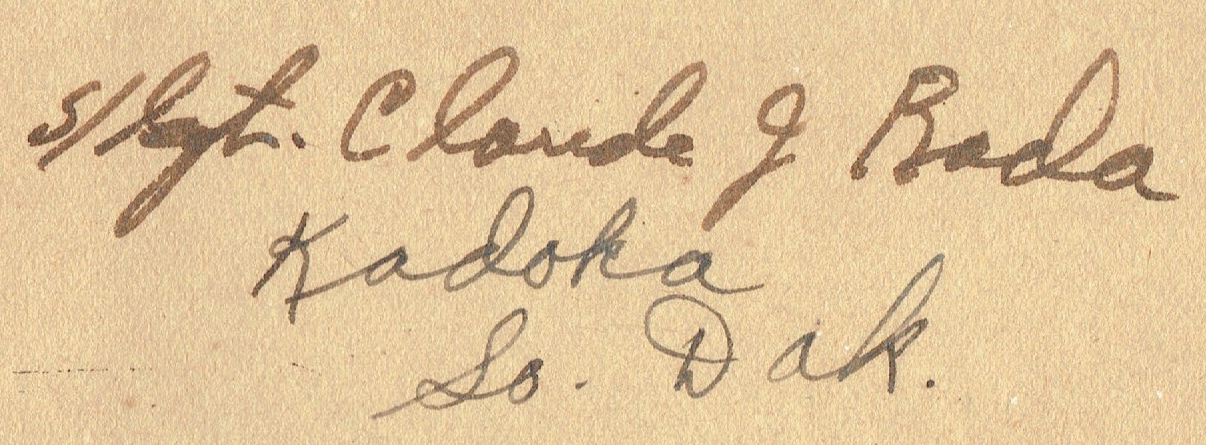 S/Sgt. Claude J Rada
Kadoka
So. Dak.